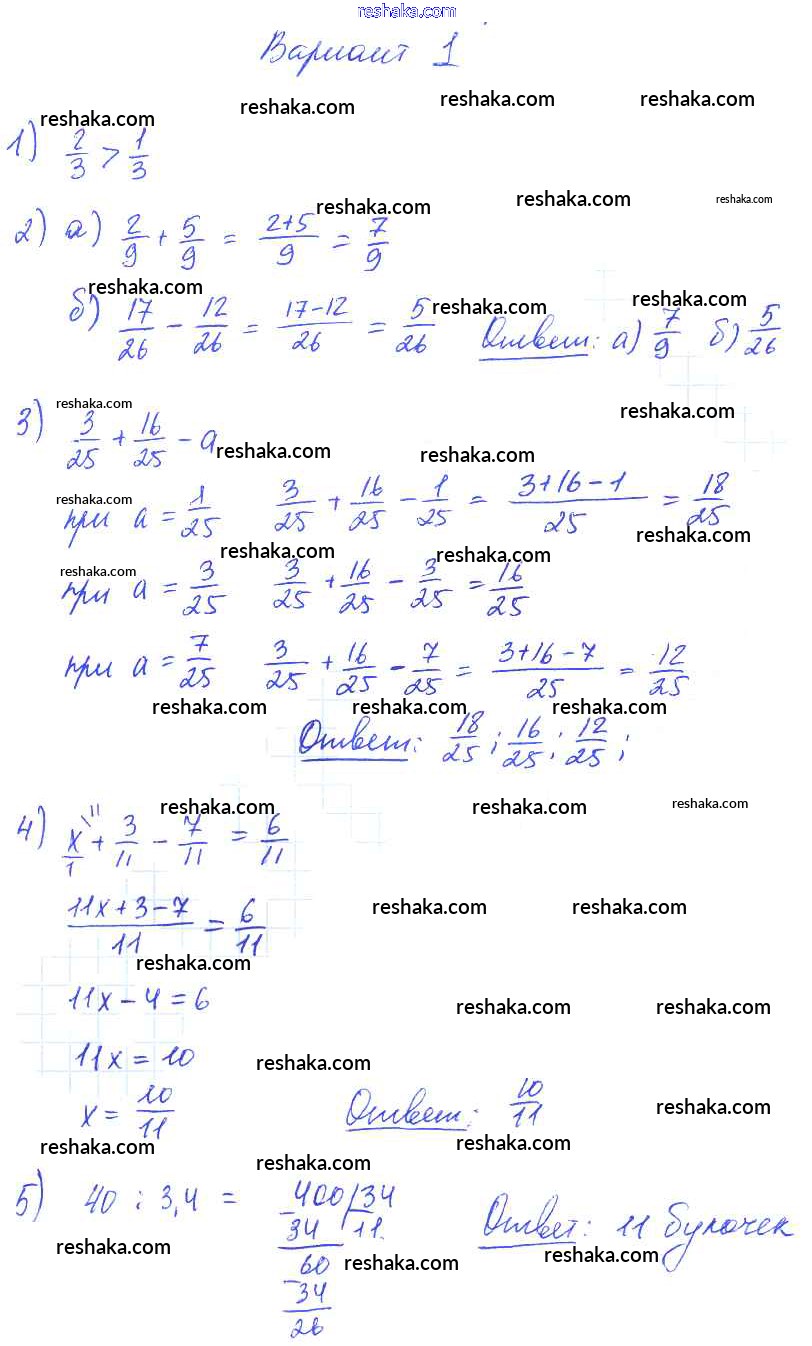 reshaka.com
Вариант 1
reshaka.com reshaka.com reshaka.com reshaka.com
1) 2/3 > 1/3
reshaka.com reshaka.com reshaka.com
2) а) 2/9 + 5/9 = (2+5)/9 = 7/9
reshaka.com reshaka.com reshaka.com
б) 17/26 - 12/26 = (17-12)/26 = 5/26 Ответ: а) 7/9 б) 5/26
reshaka.com reshaka.com
3) 3/25 + 16/25 - a
reshaka.com reshaka.com
reshaka.com reshaka.com
при a = 1/25 3/25 + 16/25 - 1/25 = (3+16-1)/25 = 18/25
reshaka.com reshaka.com reshaka.com
при a = 3/25 3/25 + 16/25 - 3/25 = 16/25
при a = 7/25 3/25 + 16/25 - 7/25 = (3+16-7)/25 = 12/25
reshaka.com reshaka.com reshaka.com
Ответ: 18/25; 16/25; 12/25;
reshaka.com reshaka.com reshaka.com
4) x/1 \11 + 3/11 - 7/11 = 6/11
reshaka.com reshaka.com
(11x+3-7)/11 = 6/11
reshaka.com
11x - 4 = 6
reshaka.com reshaka.com
11x = 10
reshaka.com
x = 10/11 Ответ: 10/11
reshaka.com
reshaka.com reshaka.com
reshaka.com
5) 40 : 3,4 = 400 | 34 Ответ: 11 булочек
- 34 11
reshaka.com reshaka.com
60
reshaka.com
- 34
26